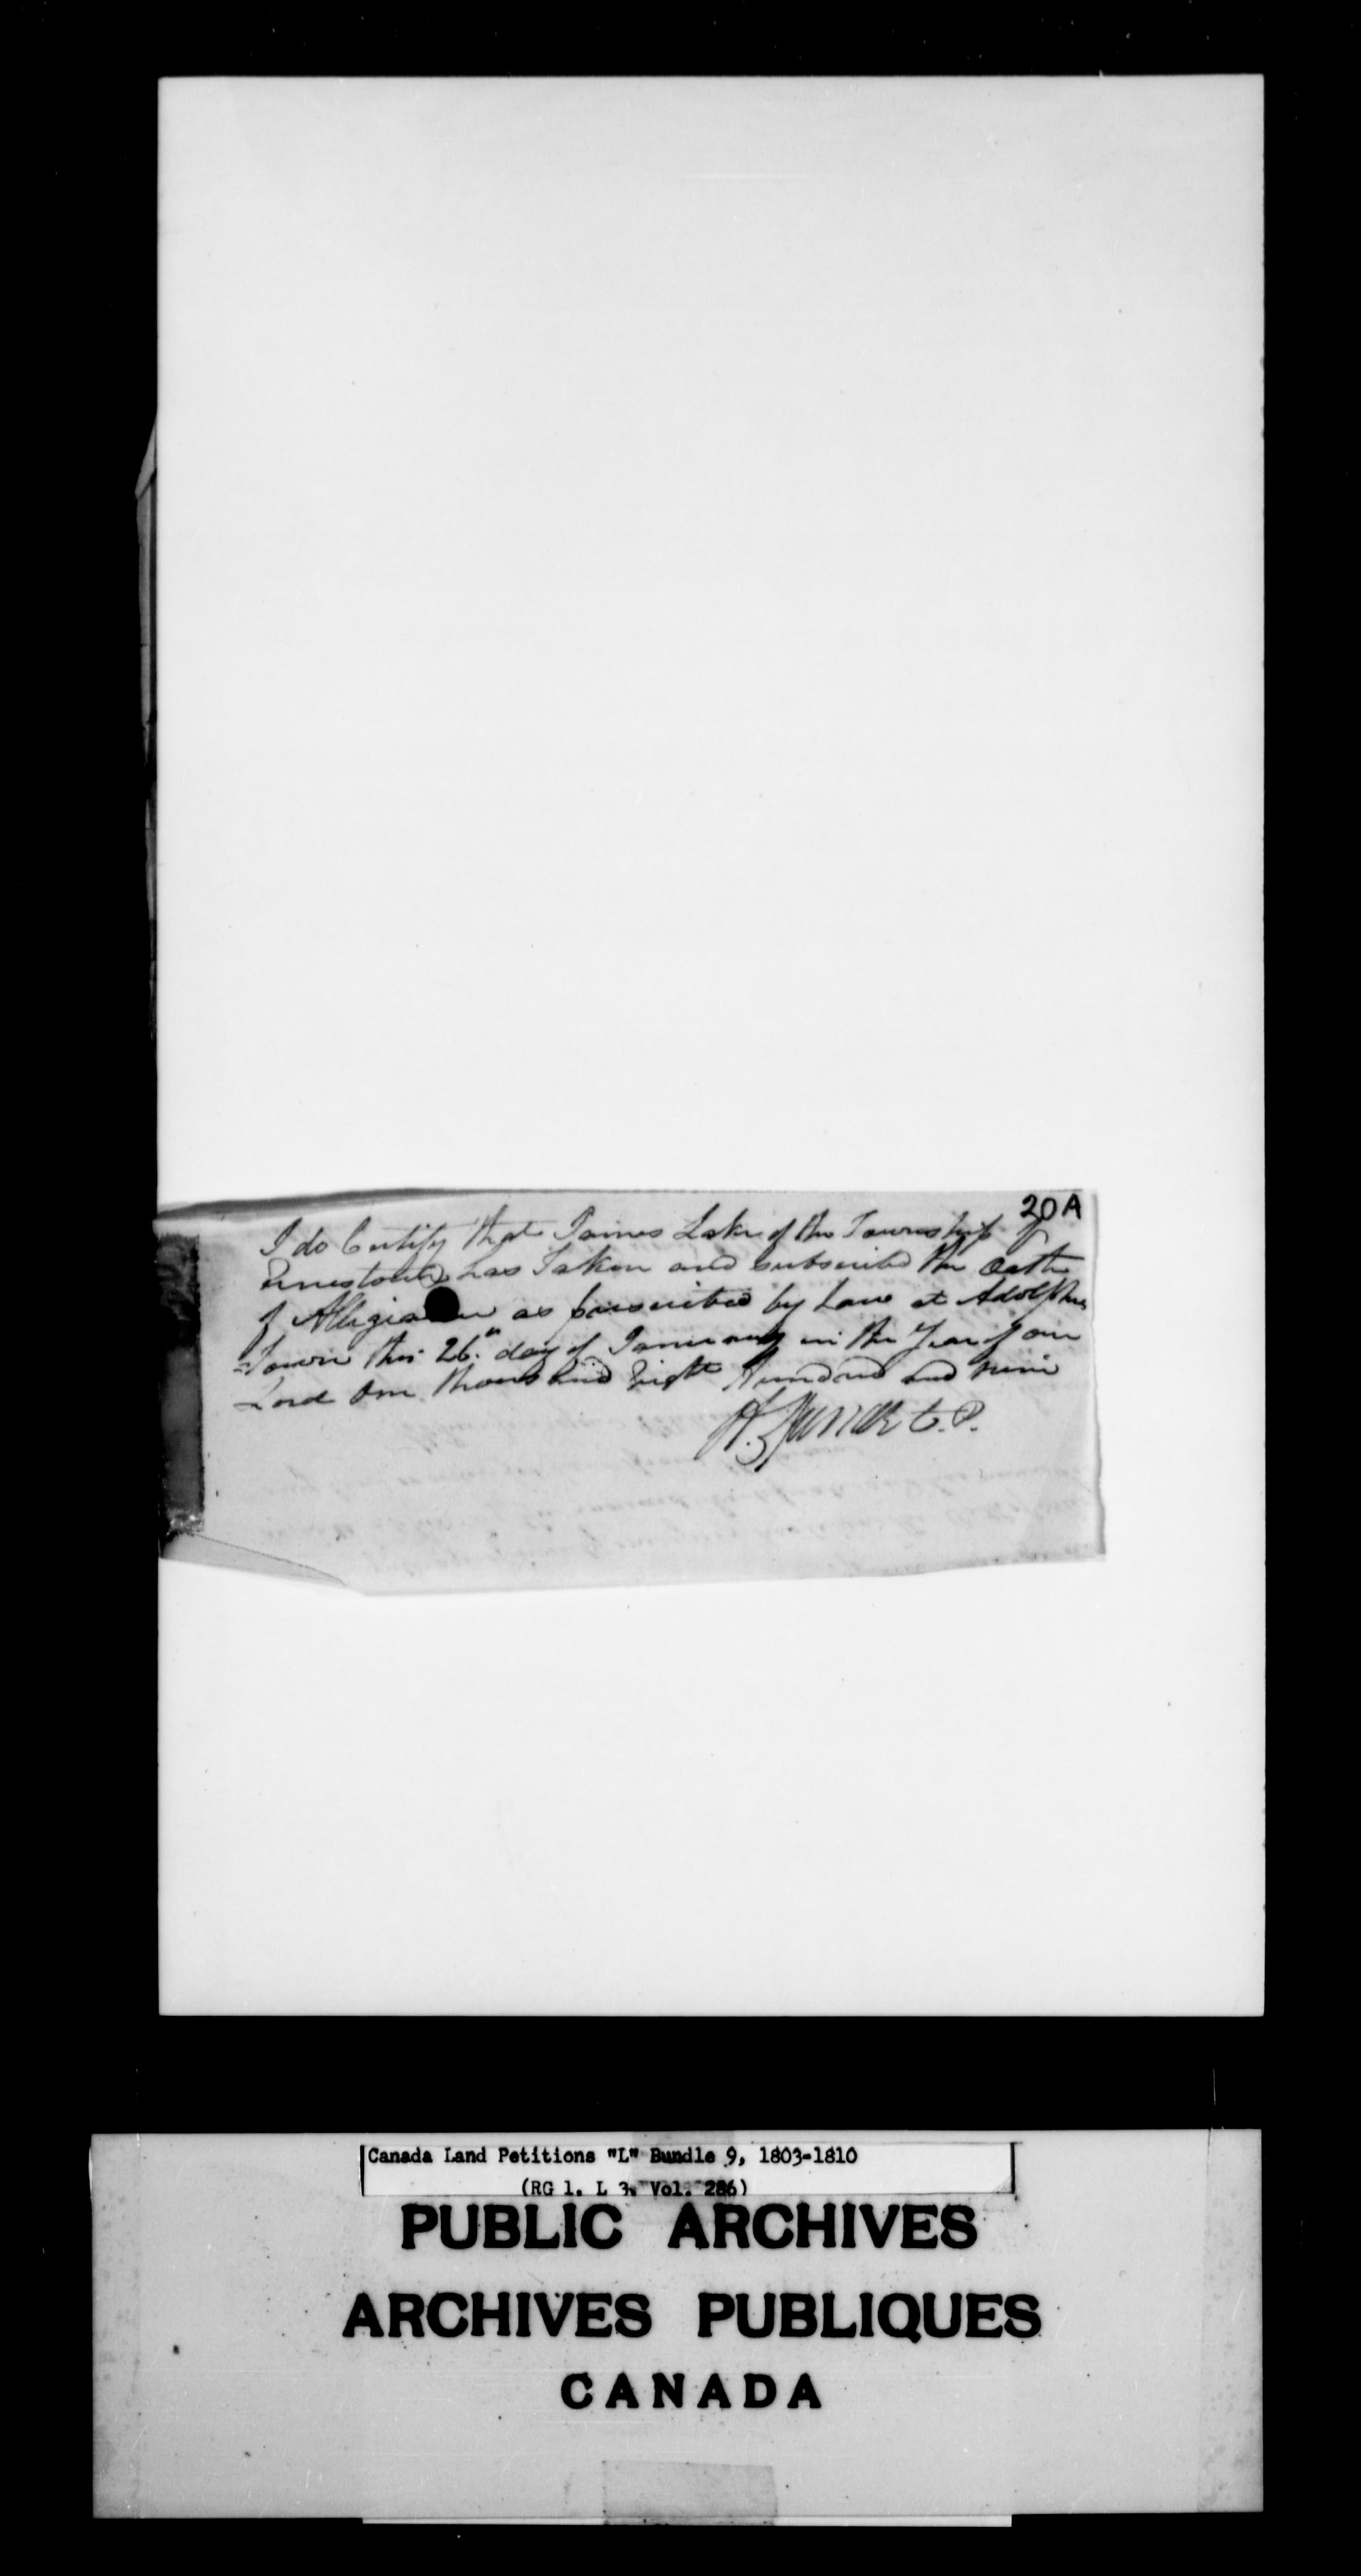 20A
I do Certify that James Lake of the Township of
Ernestown has Taken and subscribed the Oath
of Allegiance as prescribed by Law at Adolphus
=Town this 26.th day of January in the Year of our
Lord One thousand Eight Hundred and nine
C.P.
Canada Land Petitions "L" Bundle 9, 1803-1810
(RG 1, L 3, Vol. 286)
PUBLIC ARCHIVES
ARCHIVES PUBLIQUES
CANADA